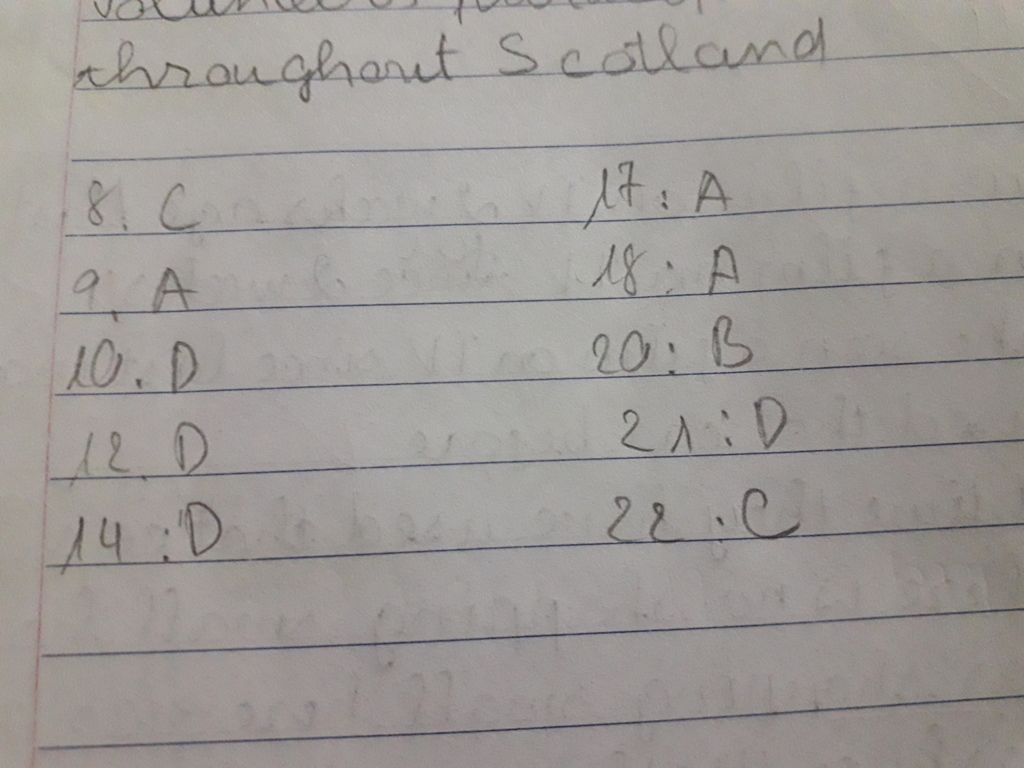 throughout Scotland
8. C 17: A
9. A 18: A
10. D 20: B
12. D 21: D
14: D 22. C